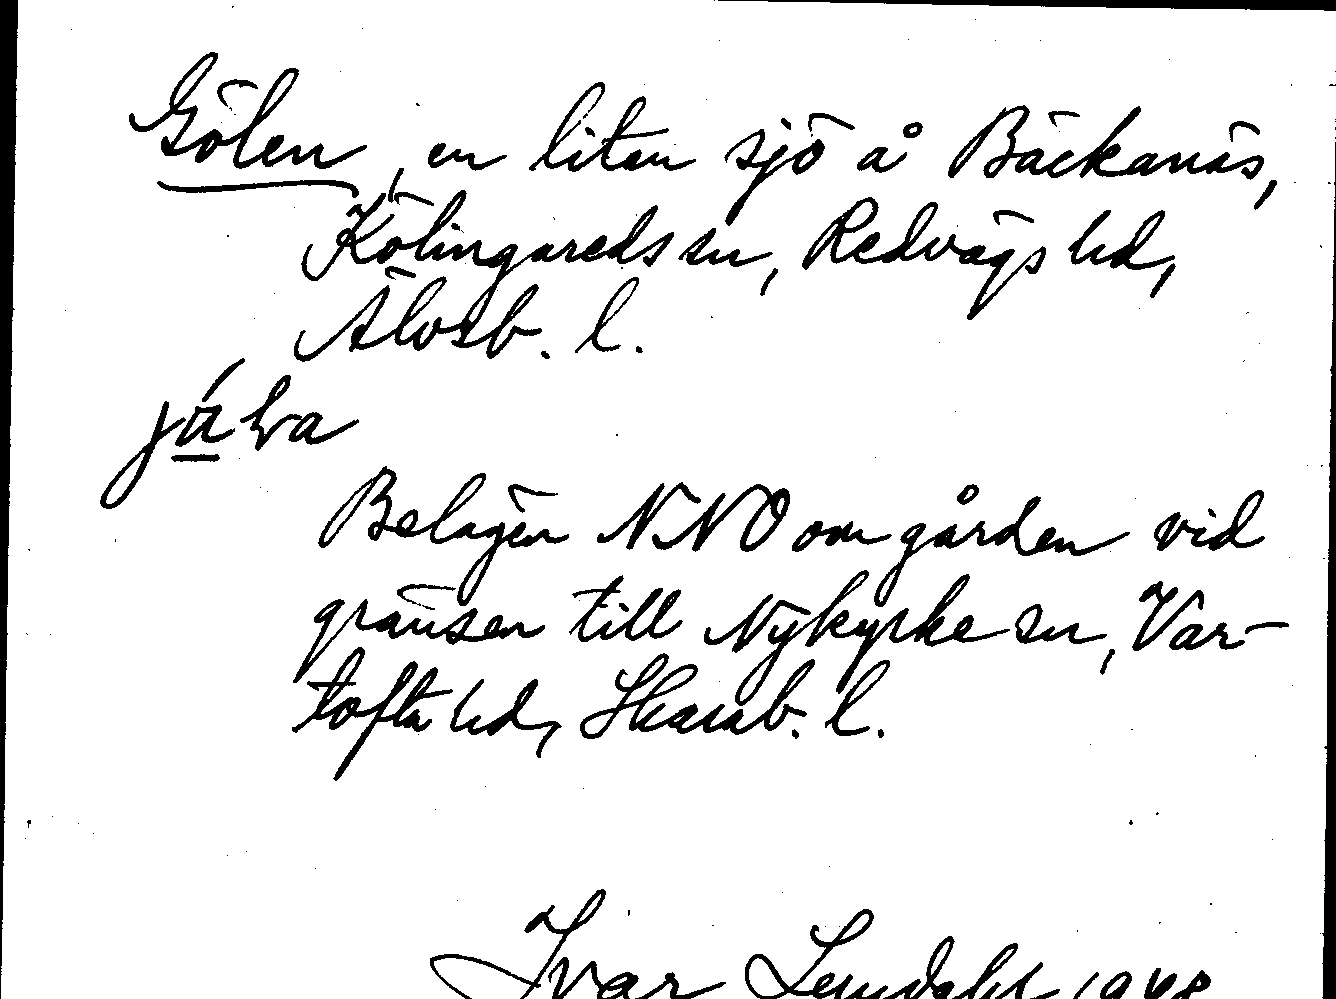 Gölen, en liten sjö å Bäckanäs,
Kölingareds sn, Redvägs hd,
Älvsb. l.
Belägen NNO om gården vid
gränsen till Nykyrke sn, Var-
tofta hd, Skarab. l.
Ivar Lundahl 1948